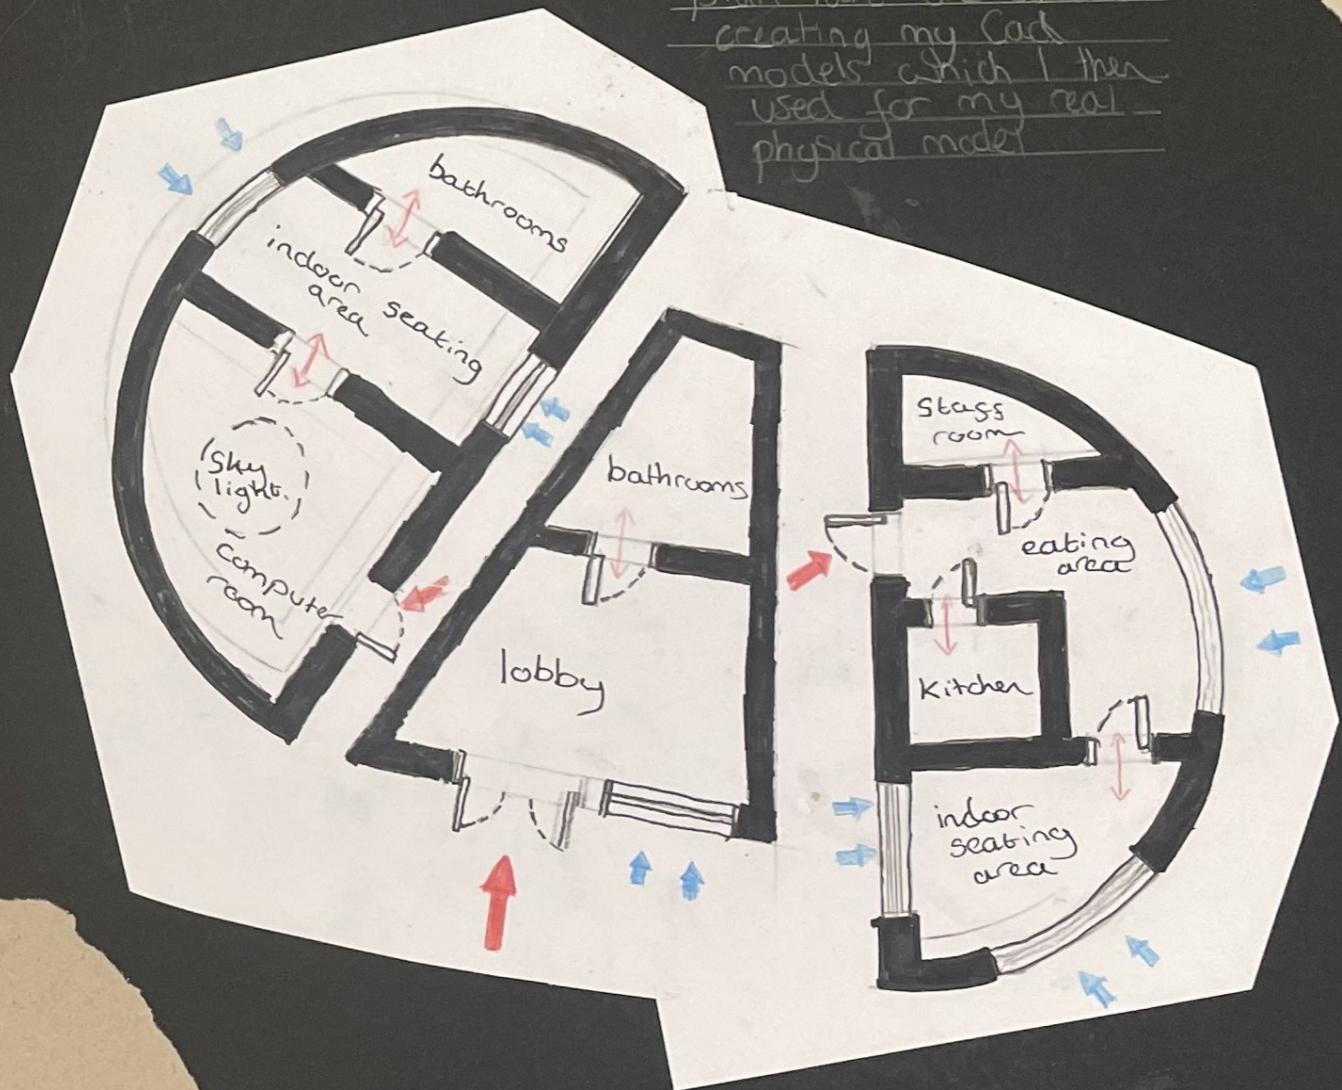 creating my Card
models which I then
used for my real
physical model
bathrooms
indoor seating
area
Sky
light.
Computer
room
bathrooms
lobby
Staff
room
eating
area
Kitchen
indoor
seating
area